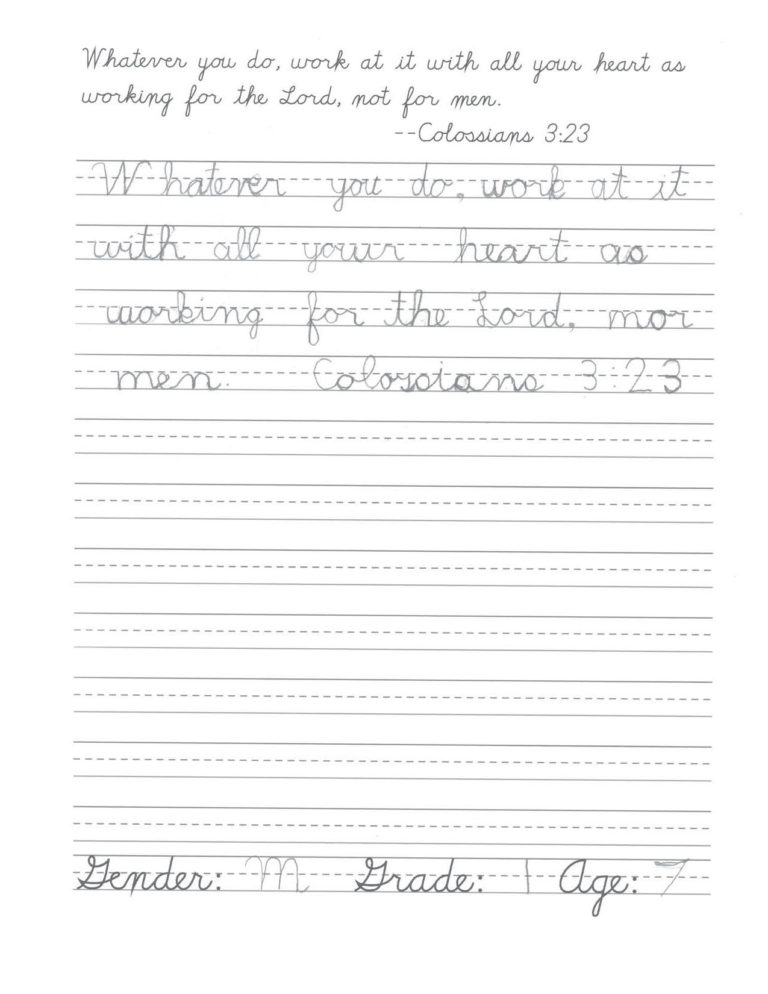 Whatever you do, work at it with all your heart as
working for the Lord, not for men.
--Colossians 3:23
Whatever you do, work at it
with all your heart as
working for the Lord, mor
men. Colossians 3:23
Gender: M Grade: 1 Age: 7